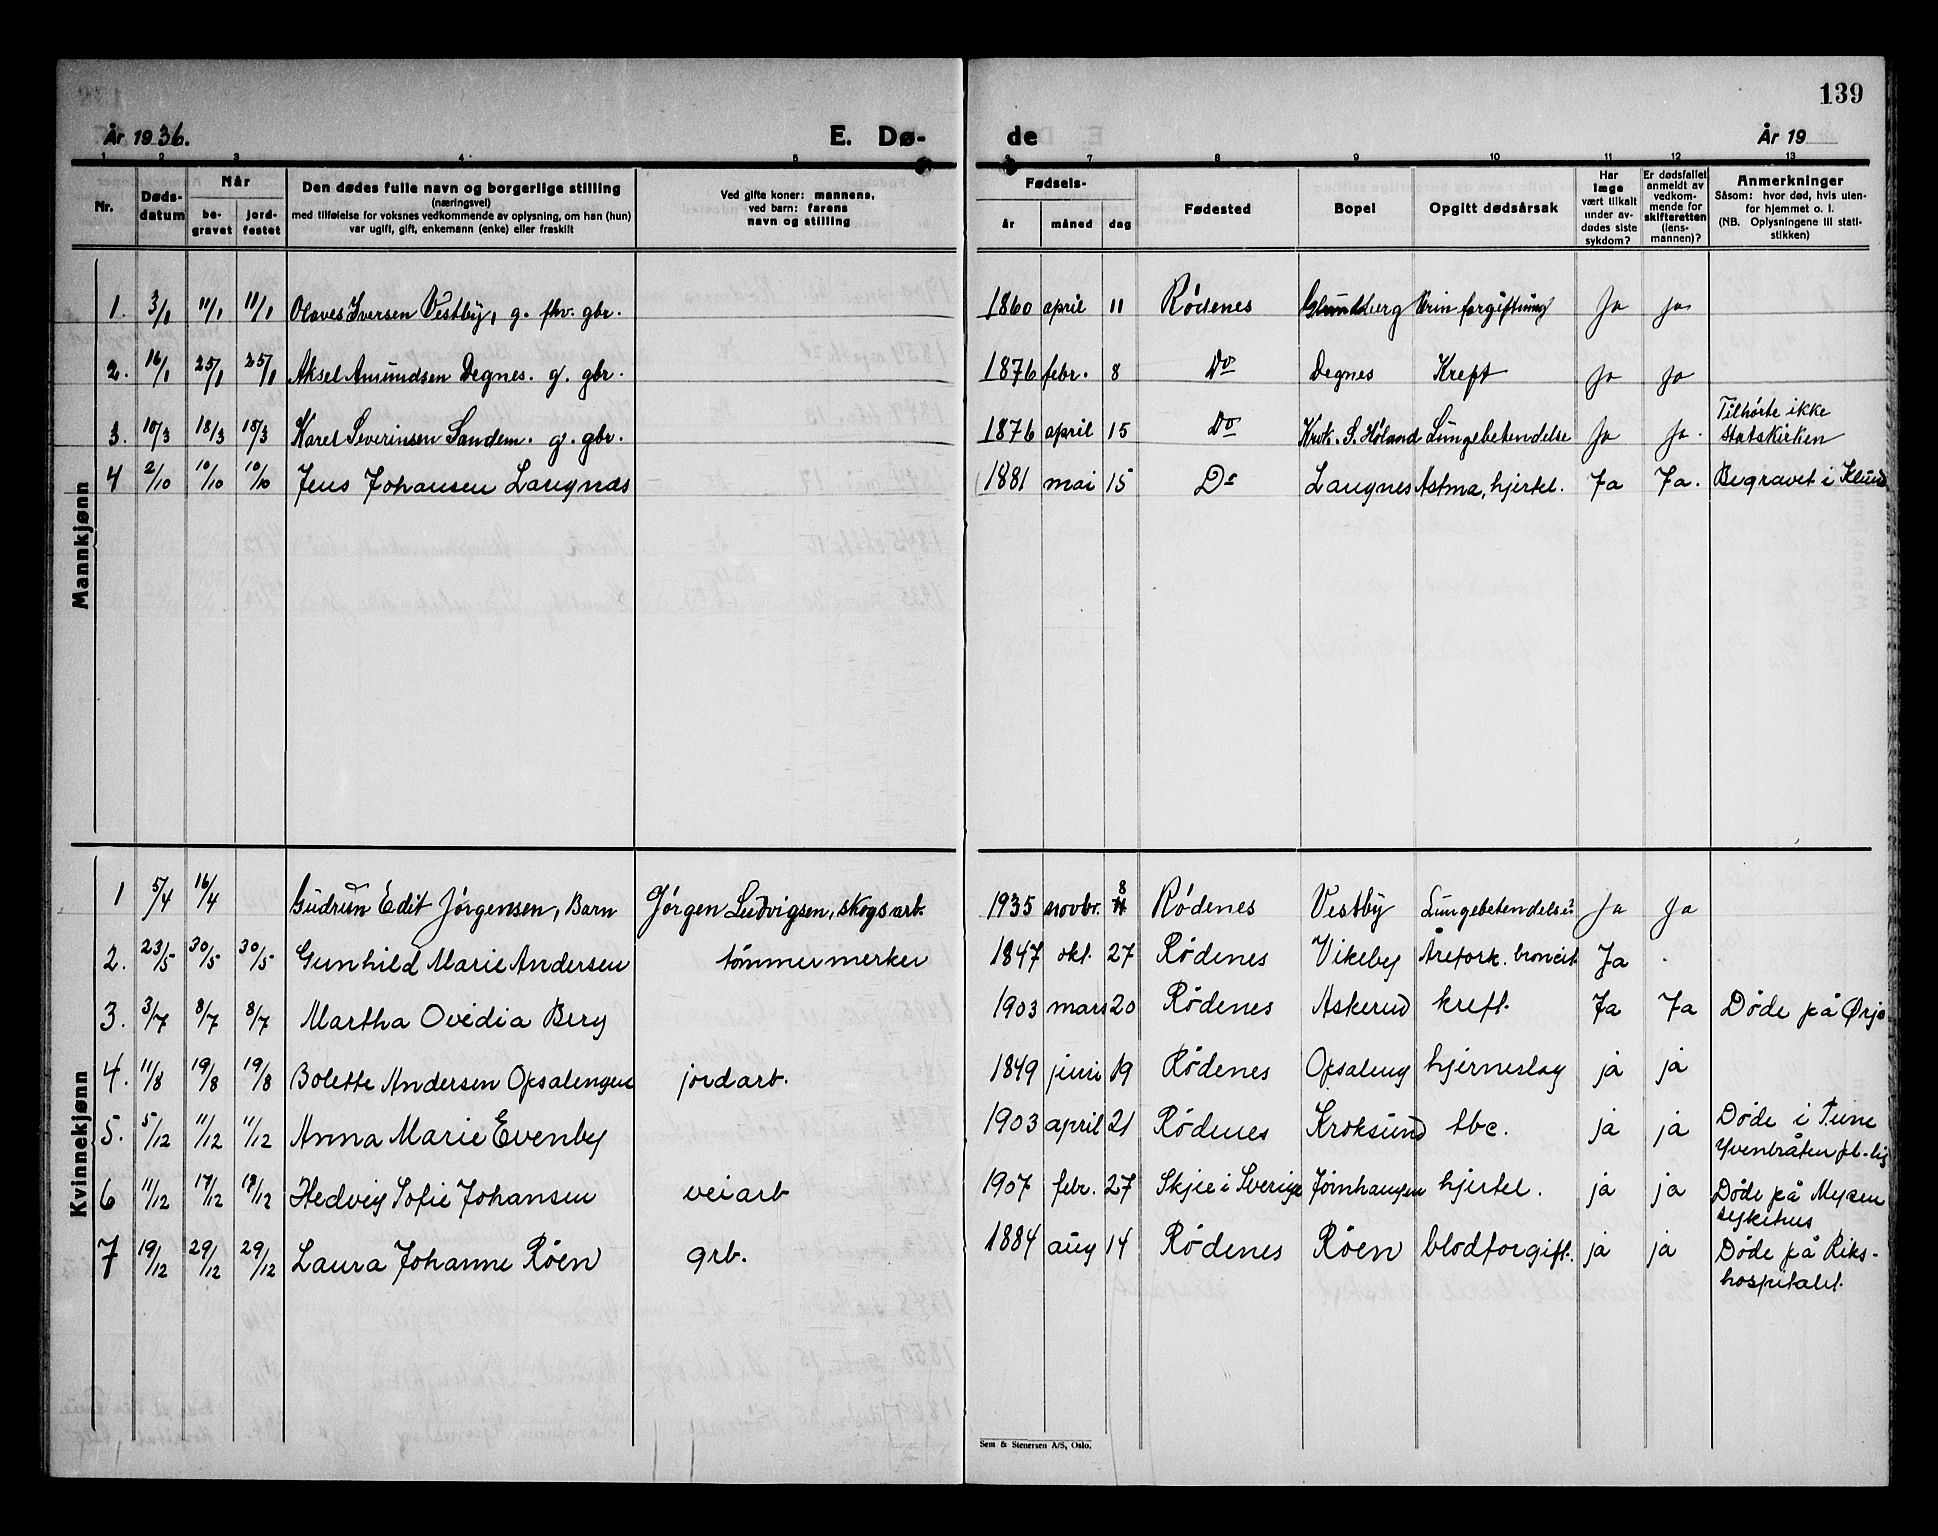 139
År 1936. E. Dø- de År 19
1 2 3 4 5 6 7 8 9 10 11 12 13
Nr. Døds-datum Når be-gravet jord-festet Den dødes fulle navn og borgerlige stilling (næringsvei) med tilføielse for voksnes vedkommende av oplysning, om han (hun) var ugift, gift, enkemann (enke) eller fraskilt Ved gifte koner: mannens, ved barn: farens navn og stilling Fødsels- år måned dag Fødested Bopel Opgitt dødsårsak Har læge vært tilkalt under av-dødes siste sykdom? Er dødsfallet anmeldt av vedkom-mende for skifteretten (lens-mannen)? Anmerkninger Såsom: hvor død, hvis uten-for hjemmet o. l. (NB. Oplysningene til stati-stikken)
Mannkjønn
1. 3/1 11/1 11/1 Olaves Iversen Vestby, g. fhv. gbr. 1860 april 11 Rødenes Glundsberg Urinforgiftning Ja ja
2. 16/1 25/1 25/1 Aksel Amundsen Degnes. g. gbr. 1876 febr. 8 Do Degnes Kreft Ja Ja
3. 10/3 18/3 18/3 Karel Severinsen Sandem. g. gbr. 1876 april 15 Do S. Høland Lungebetendelse Ja Ja. Tilhørte ikke
statskirken
4 2/10 10/10 10/10 Jens Johansen Langnæs 1881 mai 15 Do Langnes Astma, hjertel. Ja Ja. Begravet i Klund
Kvinnekjønn
1 5/4 16/4 Gudrun Edit Jørgensen, Barn Jørgen Ludvigsen, skogsarb. 1935 novbr. 8 Rødenes Vestby Lungebetendelse? Ja Ja
2. 23/5 30/5 30/5 Gunhild Marie Andersen tømmermerker 1847 okt. 27 Rødenes Vikeby Årefork. broncit Ja
3. 3/7 8/7 8/7 Martha Ovidia Berg 1903 mars 20 Rødenes Askerud kreft. Ja Ja Døde på Ørje
4. 11/8 19/8 19/8 Bolette Andersen Opsalengen jordarb. 1849 juni 19 Rødenes Opsaleng hjerneslag ja ja
5. 5/12 11/12 11/12 Anna Marie Evenby 1903 april 21 Rødenes Kroksund tbc. ja ja Døde i Tune
6 11/12 17/12 Hedvig Sofie Johansen veiarb 1907 febr. 27 Skjee i Sverige Jørnhaugen hjertel. ja ja Døde på Mysen
sykehus
7 19/12 29/12 29/12 Laura Johanne Røen grb. 1884 aug 14 Rødenes Røen blodforgift. ja ja Døde på Riks-
hospitalet.
Sem & Stenersen A/S, Oslo.